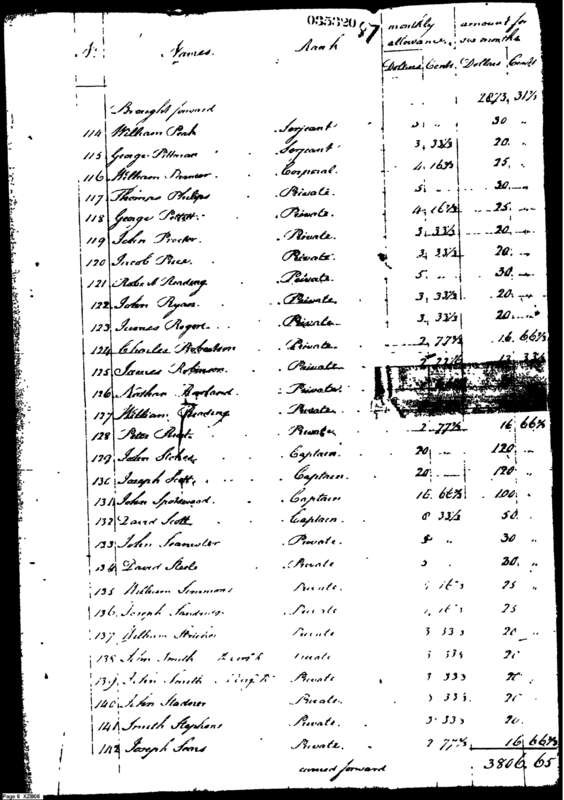 035320 87
No. Names. Rank monthly allowance. amount for six months
Dollars Cents Dollars Cents
Brought forward 2873, 31½
114 William Peak Serjeant 5 30 "
115 George Pittman Serjeant 3, 33⅓ 20. "
116 William Corporal. 4 16⅔ 25 "
117 Thomas Philips Private. 5 30
118 George Private. 4. 16⅔ 25
119 John Proctor. Private 3 33⅓ 20
120 Jacob Rice Private. 3, 33⅓ 20.
121 Robt A Reading Private 5 30
122 John Ryan Private. 3, 33⅓ 20.
123 James Rogers Private. 3, 33⅓ 20
124 Charles Robertson Private 2 77⅔ 16 66⅔
125 James Robinson. Private 2 13 33⅓
126 Nathan Private.
127 William Reading Private
128 Peter Private 2 77⅔ 16 66⅔
129 John Captain 20 120
130 Joseph Scott Captain. 20 120
131 John Spotswood Captain 16 66⅔ 100
132 David Scott Captain 8 33⅓ 50.
133 John Private 5 " 30 "
134 David Steele Private 5 30. "
135 William Simmons Private. 4 16⅔ 25 "
136 Joseph Private. 4, 16⅔ 25
137 William Private 3 33⅓ 20 "
138 John Smith Private 3 33⅓ 20
139 John Smith Private 3 33⅓ 20
140 John Private. 3 33⅓ 20
141 Smith Stephens Private. 3 33⅓ 20
142 Joseph Sears Private. 2 77⅔ 16 66⅔
carried forward 3806, 65
Page 6 XZB06